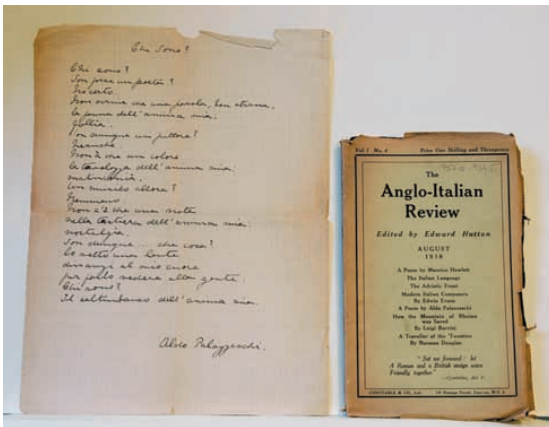 Chi Sono?
Chi sono?
Son forse un poeta?
No certo.
Non scrive che una parola, ben strana,
la penna dell'anima mia:
follia.
Son dunque un pittore?
Neanche
Non à che un colore
la tavolozza dell'anima mia:
malinconia.
Un musico allora?
Nemmeno
Non c'è che una nota
nella tastiera dell'anima mia:
nostalgia.
Son dunque ... che cosa?
Io metto una lente
dinanzi al mio cuore
per farlo vedere alla gente.
Chi sono?
Il saltimbanco dell'anima mia.
Aldo Palazzeschi.
Vol I No. 4 Price One Shilling and Threepence
The
Anglo-Italian
Review
Edited by Edward Hutton
AUGUST
1918
A Poem by Maurice Hewlett
The Italian Language
The Adriatic Front
Modern Italian Composers
By Edwin Evans
A Poem by Aldo Palazzeschi
How the Mountain of Rheims
was Saved
By Luigi Barzini
A Traveller of the 'Twenties
By Norman Douglas
"Set we forward: let
A Roman and a British ensign wave
Friendly together"
—Cymbeline, Act V.
CONSTABLE & CO. Ltd. Orange Street, London, W.C. 2